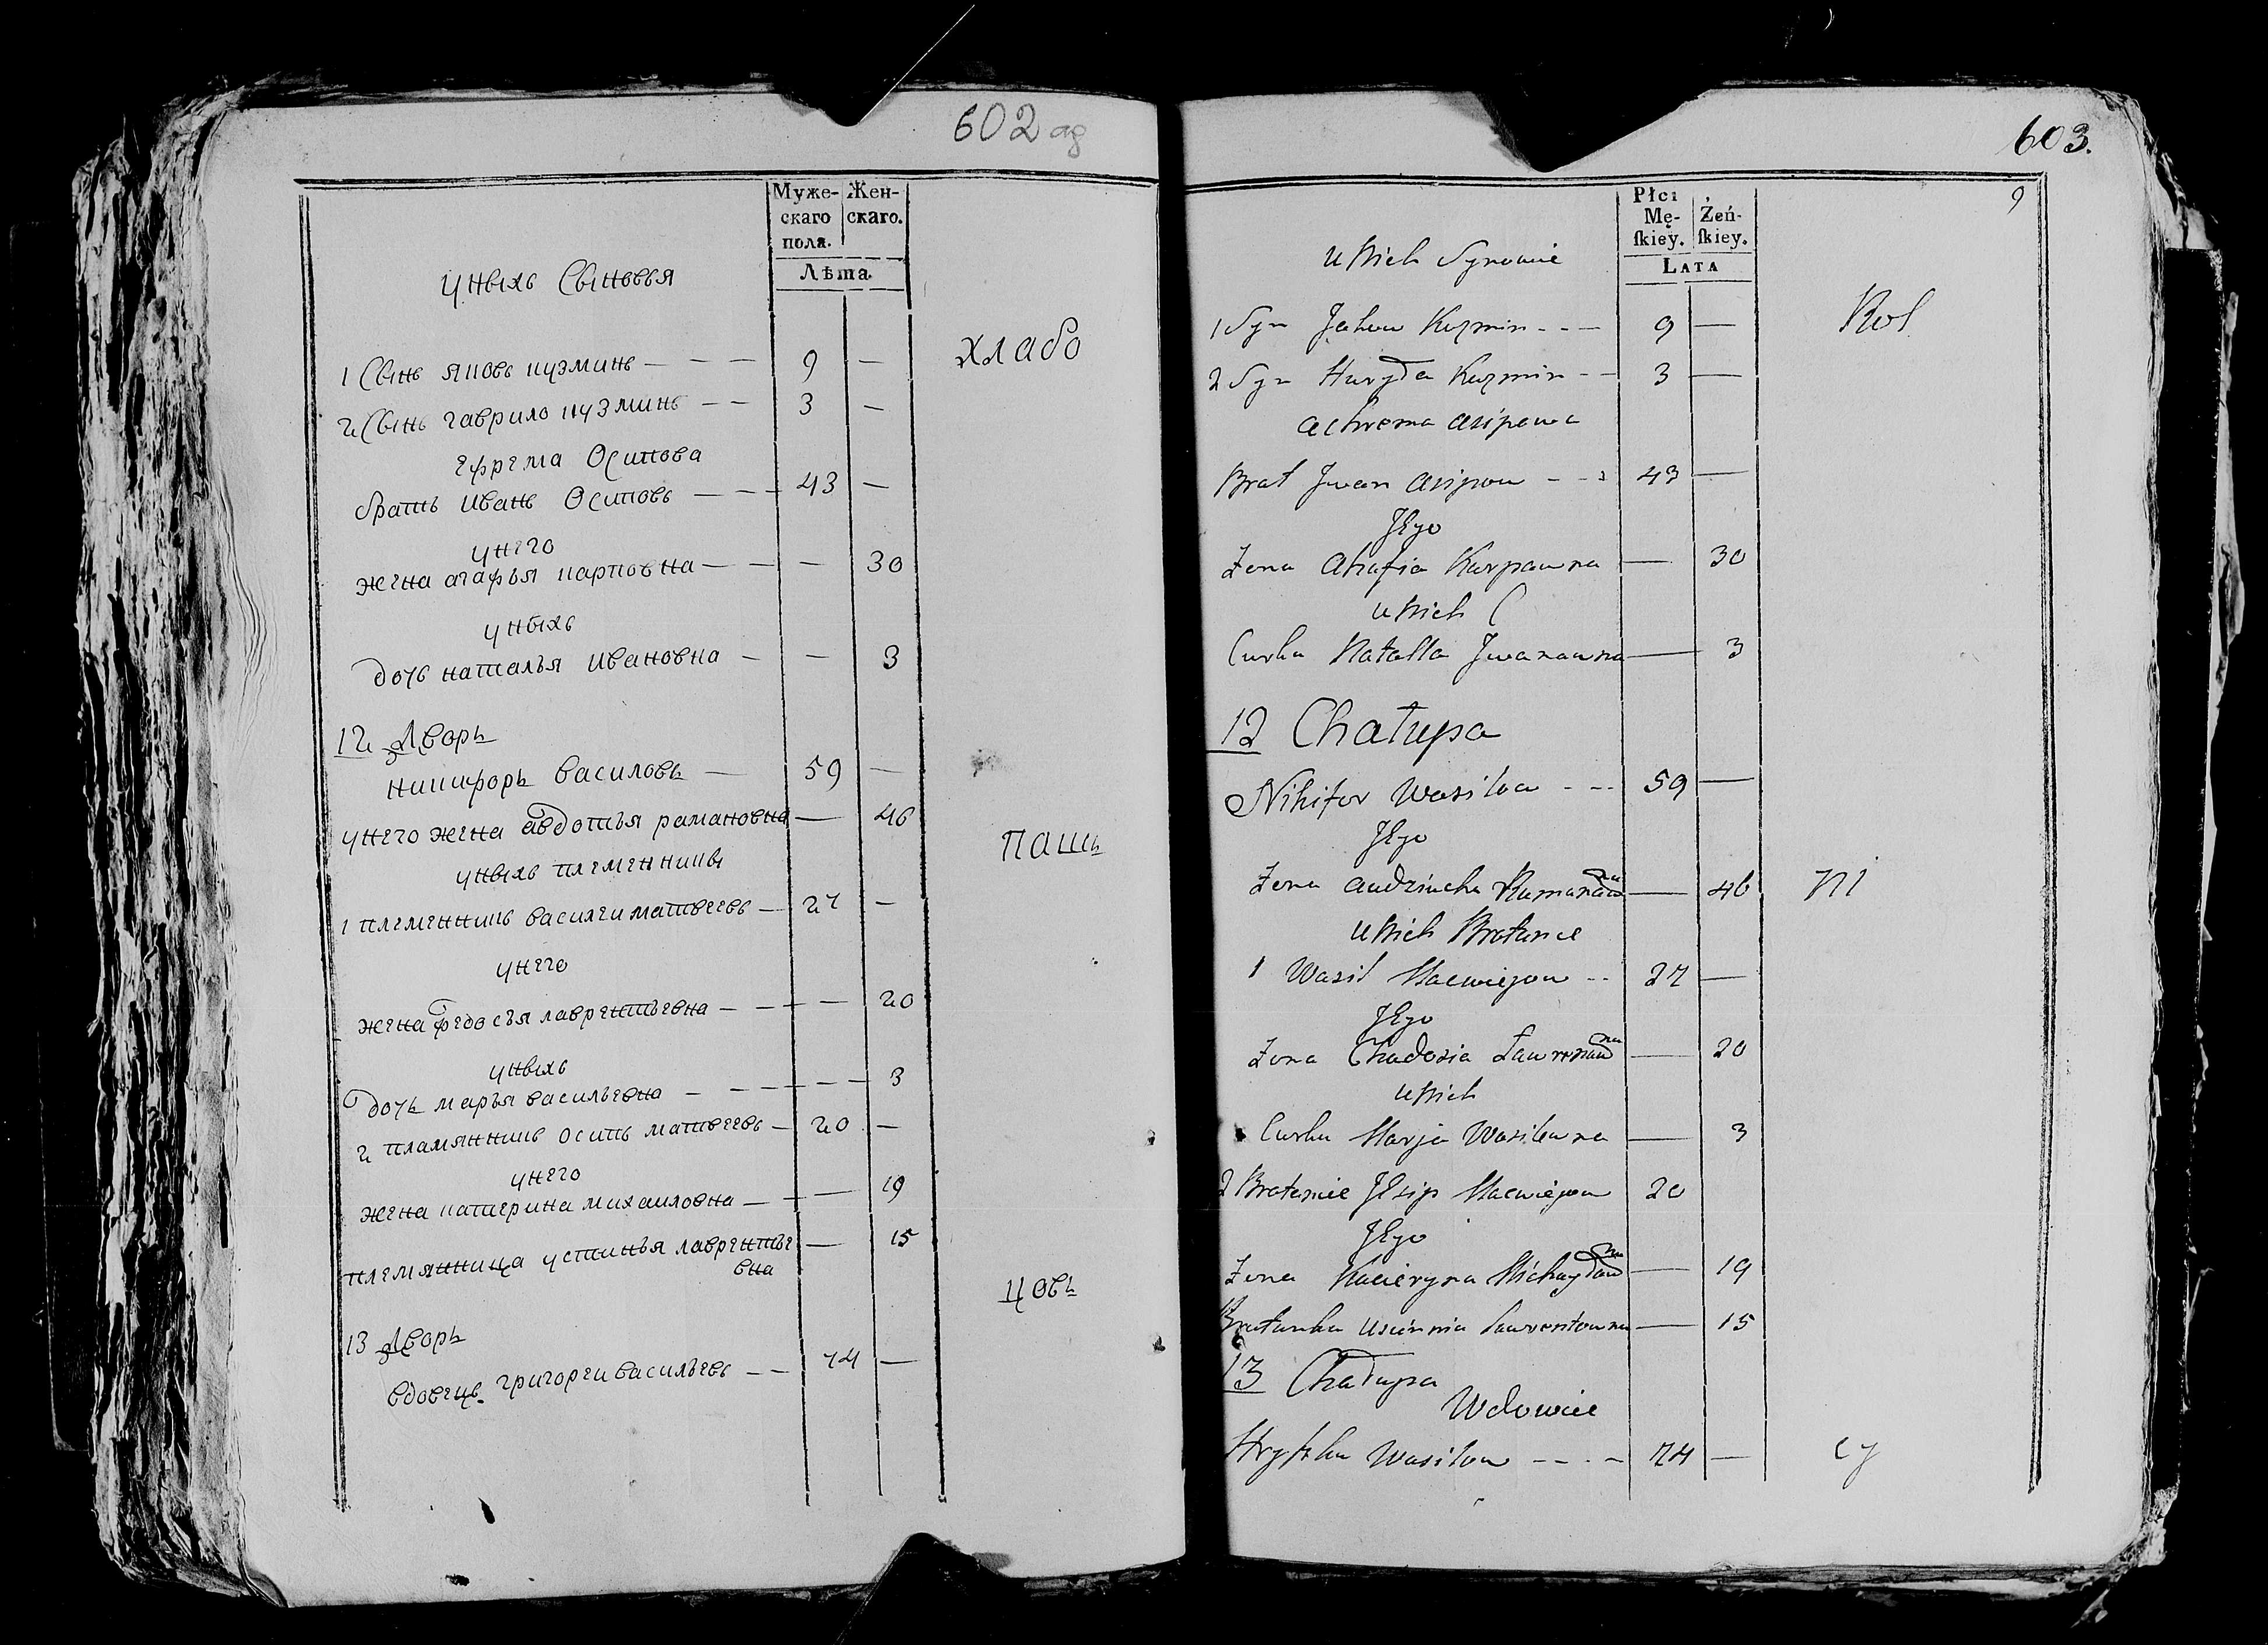 602 аб
Муже-
скаго
пола.
Жен-
скаго.
Лѣта
уныхъ Сыновья
1 Сынъ яковъ кузминъ — — — 9 —
2 Сынъ гаврило кузминъ — — 3 —
ефрема Осипова
братъ иванъ Осиповъ — — — 43 —
унего
жена агафья карповна — — — 30
уныхъ
дочь наталья ивановна — — 3
12 Дворъ
никифоръ василовъ — 59 —
унего жена авдотья рамановна — 46
уныхъ племенники
1 племенникъ василеи матвеевъ — 27 —
унего
жена федосья лаврентьевна — — — 20
уныхъ
дочь марья васильевна — — — — 3
2 пламянникъ осипъ матвеевъ — 20 —
унего
жена катерина михаиловна — — 19
племянница устинья лаврентье — 15
вна
13 Дворъ
вдовецъ григореи васильевъ — — 74 —
хлабо
паш
цовъ
603.
9
Płci
Mę-
ſkiey.
Żeń-
ſkiey.
LATA
u Nich Synowie
1 Syn Jakow Kuzmin - - - 9 —
2 Syn Huryła Kuzmin - - 3 —
Achrema Asipowa
Brat Jwan Asipow - - - 43 —
Jego
Zona Ahafia Karpawna — 30
u Nich
Curka Natalla Jwanawna — 3
12 Chałupa
Nikifor Wasilow - - - 59 —
Jego
Zona Audziucha Ramanawna — 46
u Nich Bratance
1 Wasil Macwiejow - - 27 —
Jego
Zona Chadosia Ławrenawna — 20
u Nich
Curka Marja Wasilewna — 3
2 Bratanie Jesip Macwiejow 20
Jego
Zona Kacieryna Michayławna — 19
Bratanka Uscinnia Laurentowna — 15
13 Chałupa
Wdowiec
Hryszka Wasilow - - - - 74 —
Rol
ni
cy